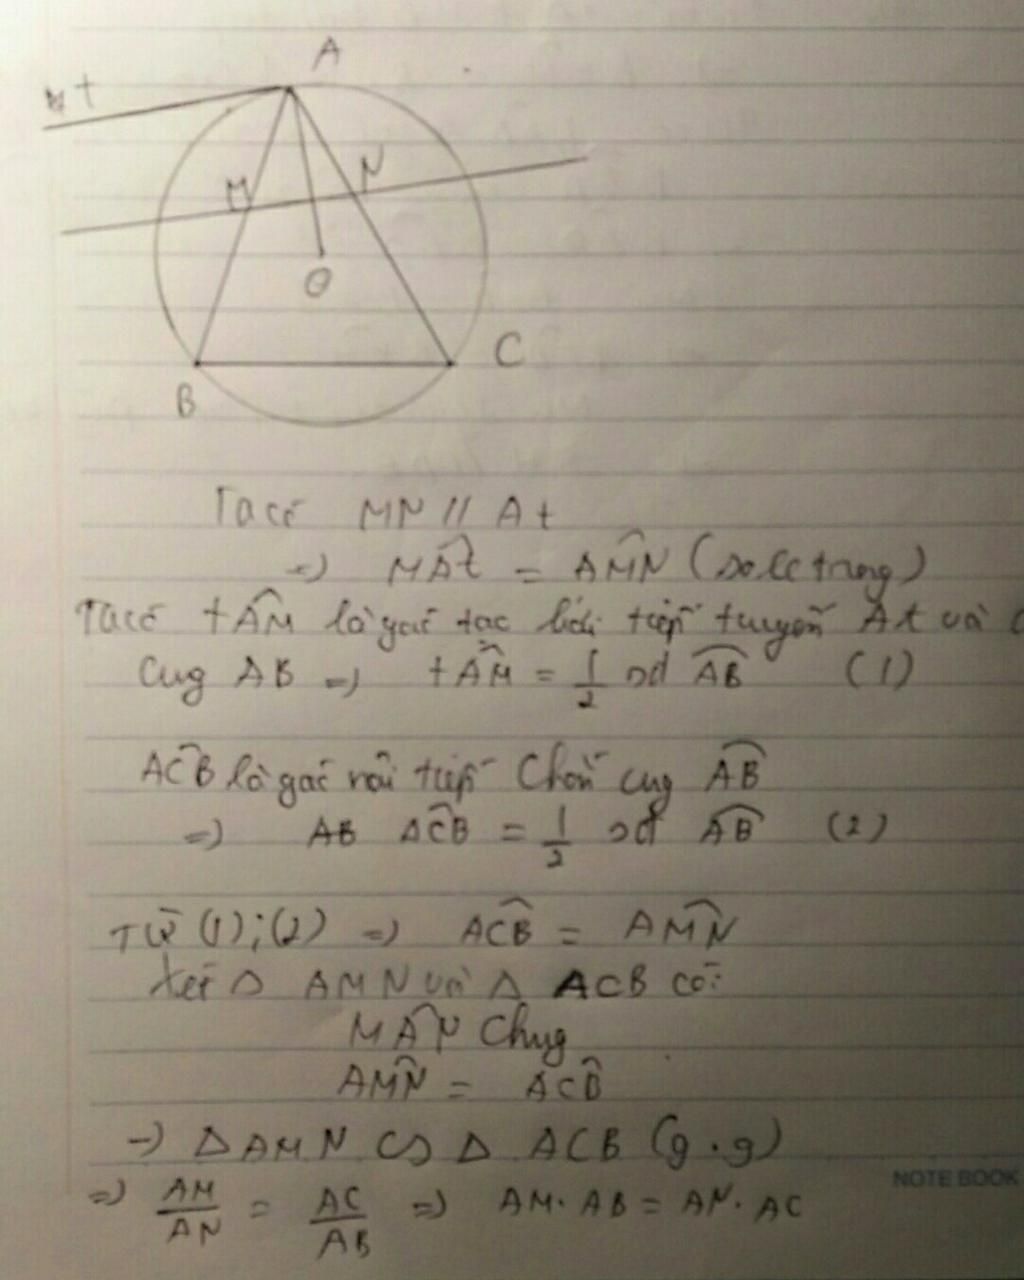 A
t
M
N
O
B
C
Ta có MN // At
=> MÂt = AM̂N (so le trong)
Ta có tÂM là góc tạo bởi tiếp tuyến At và
Cug AB => tÂM = 1/2 sđ A͡B (1)
AĈB là góc nội tiếp Chắn cug A͡B
=> AB AĈB = 1/2 sđ A͡B (2)
Từ (1);(2) => AĈB = AM̂N
Xét Δ AMN và Δ ACB có:
MÂN Chug
AM̂N = AĈB
-> Δ AMN ∽ Δ ACB (g.g)
=> AM/AN = AC/AB => AM. AB = AN. AC
NOTE BOOK